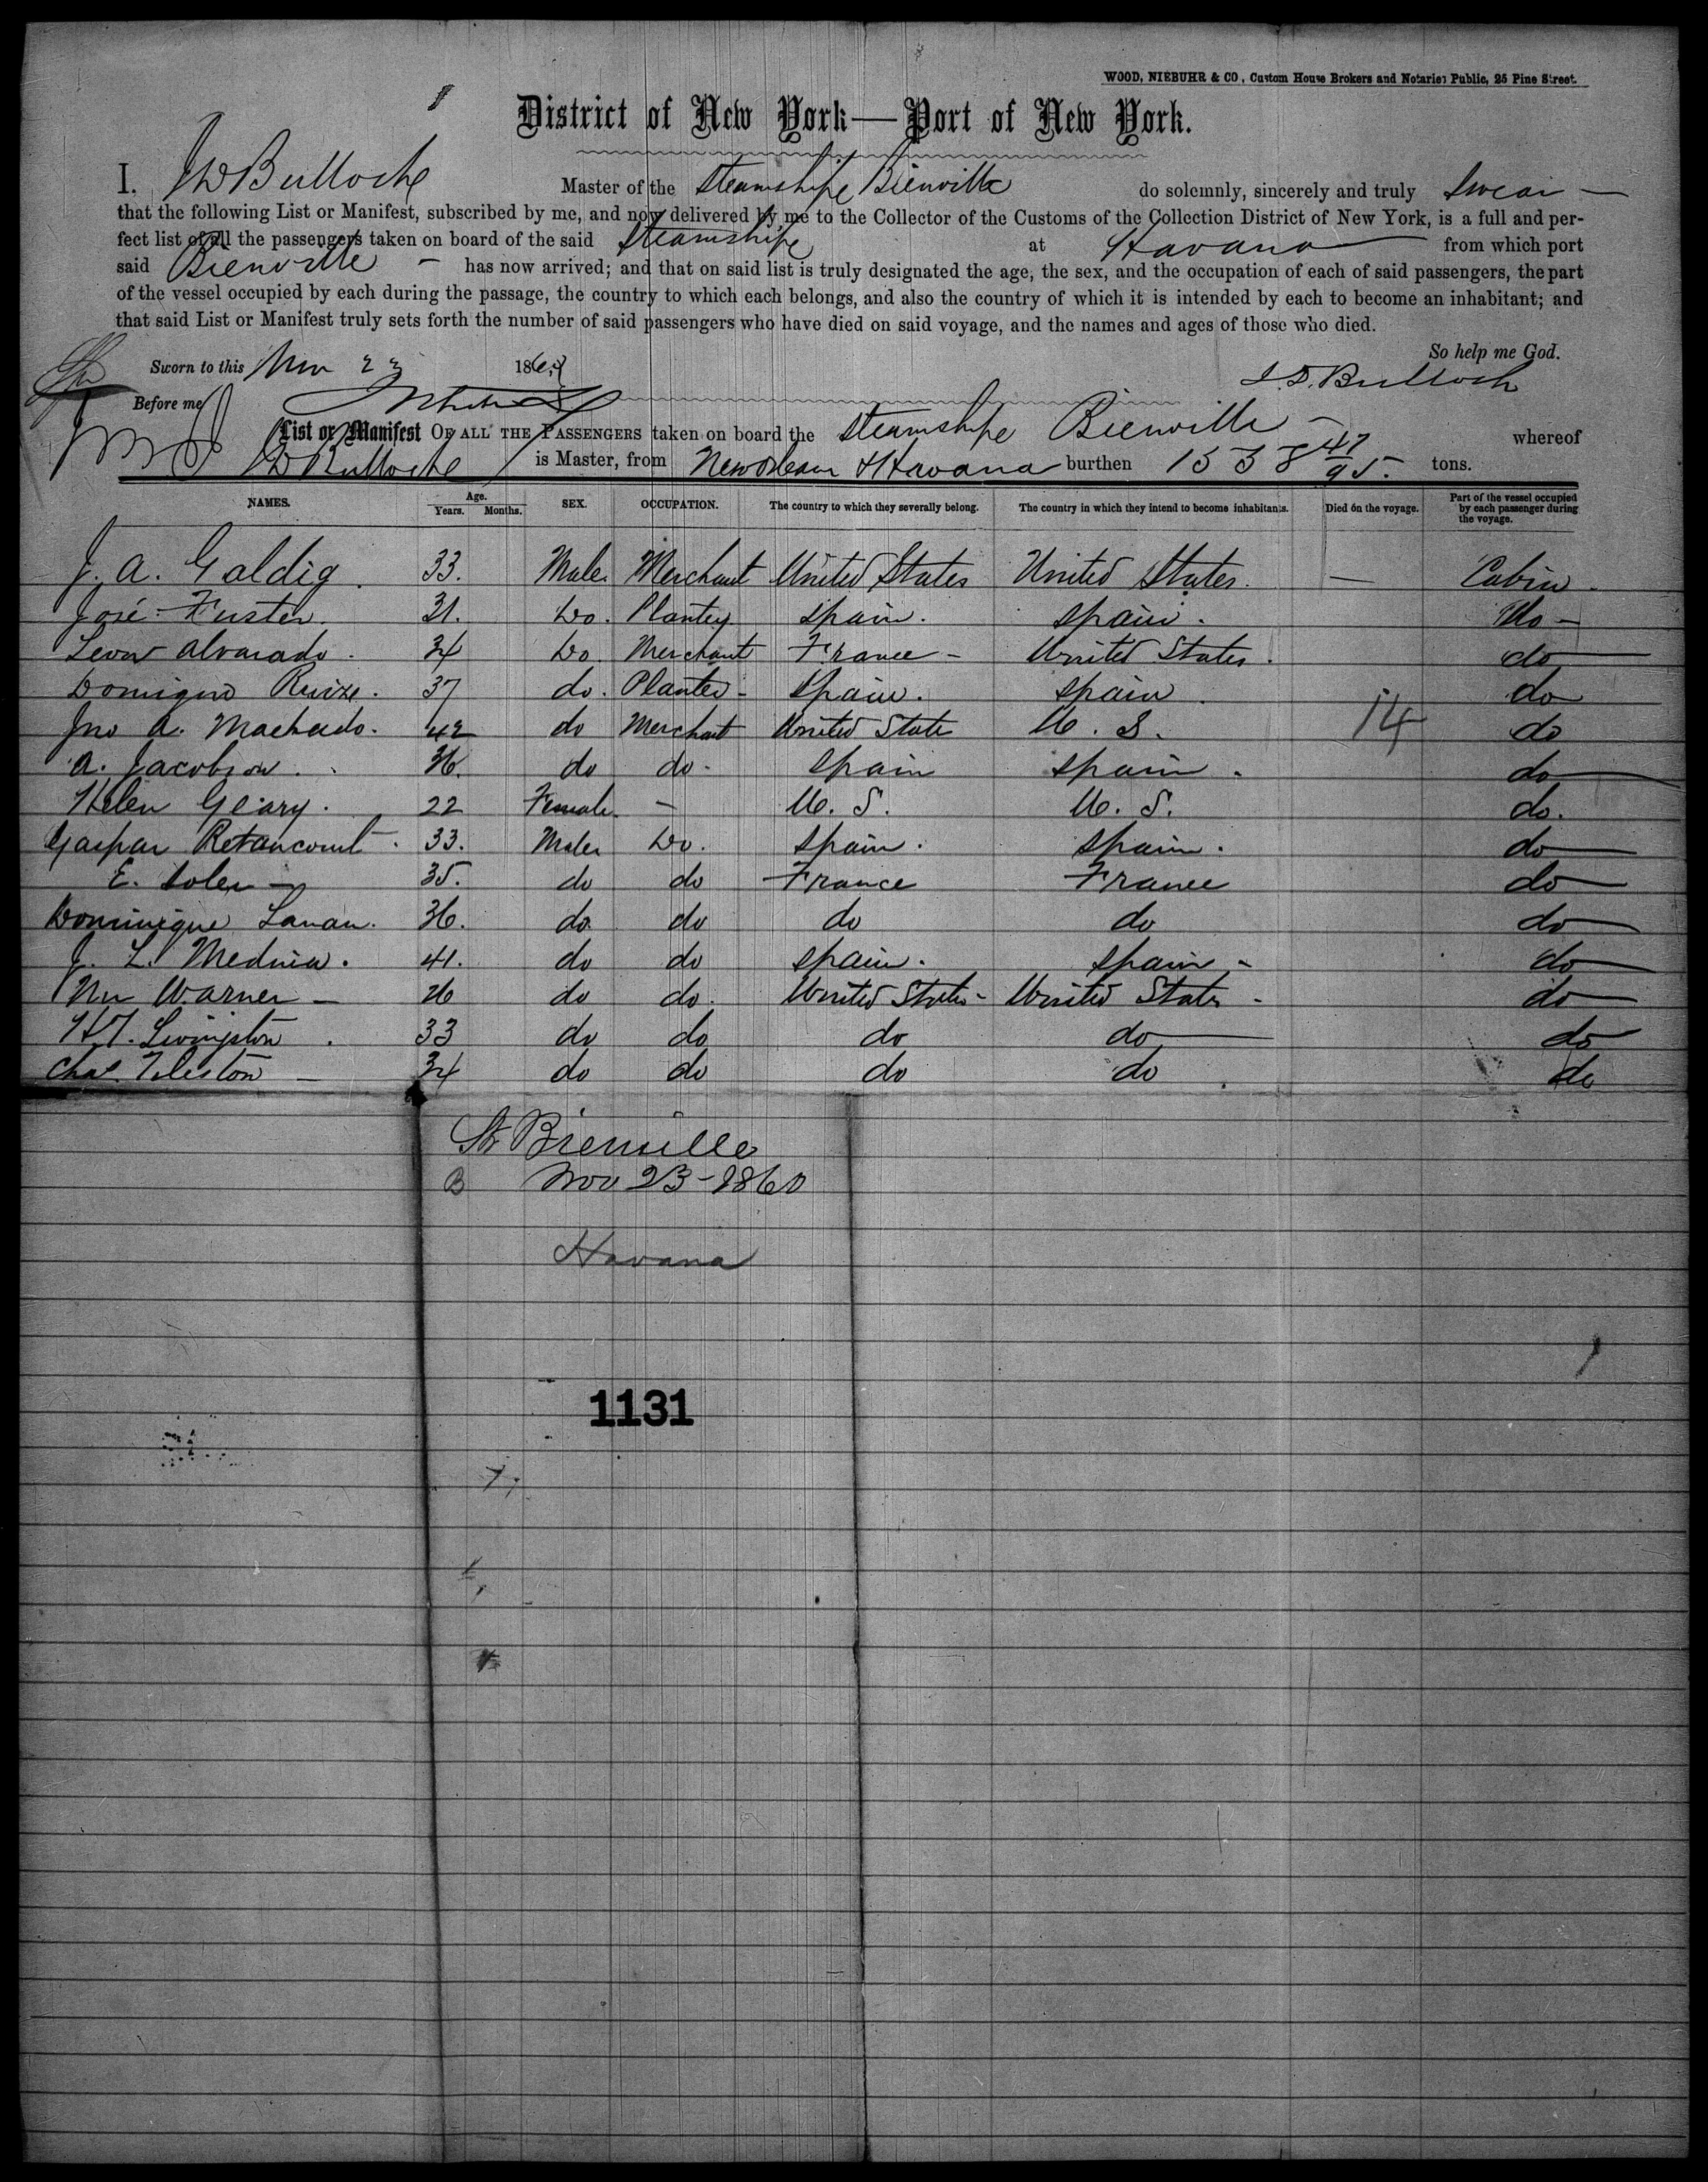 WOOD, NIEBUHR & CO, Custom House Brokers and Notaries Public, 25 Pine Street.
District of New York—Port of New York.
I. J D Bulloch Master of the Steamship Bienville do solemnly, sincerely and truly swear —
that the following List or Manifest, subscribed by me, and now delivered by me to the Collector of the Customs of the Collection District of New York, is a full and per-
fect list of all the passengers taken on board of the said Steamship at Havana from which port
said Bienville — has now arrived; and that on said list is truly designated the age, the sex, and the occupation of each of said passengers, the part
of the vessel occupied by each during the passage, the country to which each belongs, and also the country of which it is intended by each to become an inhabitant; and
that said List or Manifest truly sets forth the number of said passengers who have died on said voyage, and the names and ages of those who died.
So help me God.
Sworn to this Nov 23 186
J. D. Bulloch
Before me
List or Manifest OF ALL THE PASSENGERS taken on board the Steamship Bienville — whereof
J D Bulloch is Master, from New Orleans & Havana burthen 1538 47/95. tons.
NAMES. Age. Years. Months. SEX. OCCUPATION. The country to which they severally belong. The country in which they intend to become inhabitants. Died on the voyage. Part of the vessel occupied by each passenger during the voyage.
J. A. Galdig. 33. Male Merchant United States United States. — Cabin.
José Fuster. 31. Do. Planter Spain. Spain. Do —
Leon Alvarado. 34 Do Merchant France — United States. do
Domigno Ruize. 37 do. Planter — Spain. Spain. do
Jno A. Machado. 42 do Merchant United State U. S. 14 do
A. Jacobson. 36. do do. Spain Spain. do
Helen Geary. 22 Female — U. S. U. S. do.
Gaspar Retancourt. 33. Male Do. Spain. Spain. do
E. Soler — 35. do do France France do
Dominique Lanau. 36. do do do do do
J. L. Medina. 41. do do Spain. Spain — do
Wm Warner — 26 do do. United States — United States — do
H. T. Livingston. 33 do do do do do
Chas Tileston — 34 do do do do. do
Str Bienville
B Nov 23 - 1860
Havana
1131